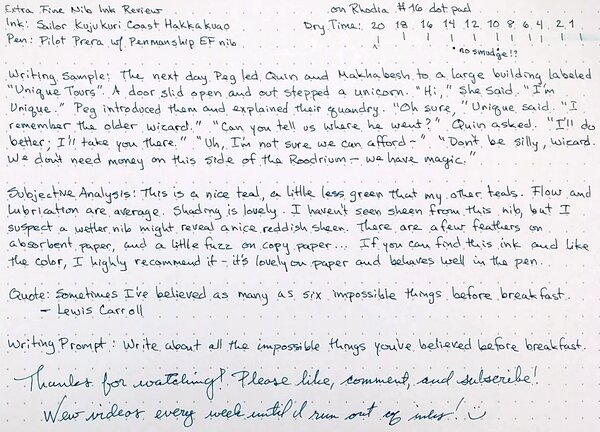 Extra Fine Nib Ink Review on Rhodia #16 dot pad
Ink: Sailor Kujukuri Coast Hakkakuao Dry Time: 20 18 16 14 12 10 8 6 4 2 1
Pen: Pilot Prera w/ Penmanship EF nib
no smudge!?
Writing Sample: The next day Peg led Quin and Makhabesh to a large building labeled
"Unique Tours". A door slid open and out stepped a unicorn. "Hi," she said. "I'm
Unique." Peg introduced them and explained their quandry. "Oh sure," Unique said. "I
remember the older wizard." "Can you tell us where he went?" Quin asked. "I'll do
better; I'll take you there." "Uh, I'm not sure we can afford–" "Don't be silly, wizard.
We don't need money on this side of the Roodrium – we have magic."
Subjective Analysis: This is a nice teal, a little less green that my other teals. Flow and
lubrication are average. Shading is lovely. I haven't seen sheen from this nib, but I
suspect a wetter nib might reveal a nice reddish sheen. There are a few feathers on
absorbent paper, and a little fuzz on copy paper... If you can find this ink and like
the color, I highly recommend it – it's lovely on paper and behaves well in the pen.
Quote: Sometimes I've believed as many as six impossible things before breakfast.
– Lewis Carroll
Writing Prompt: Write about all the impossible things you've believed before breakfast.
Thanks for watching! Please like, comment, and subscribe!
New videos every week until I run out of inks!